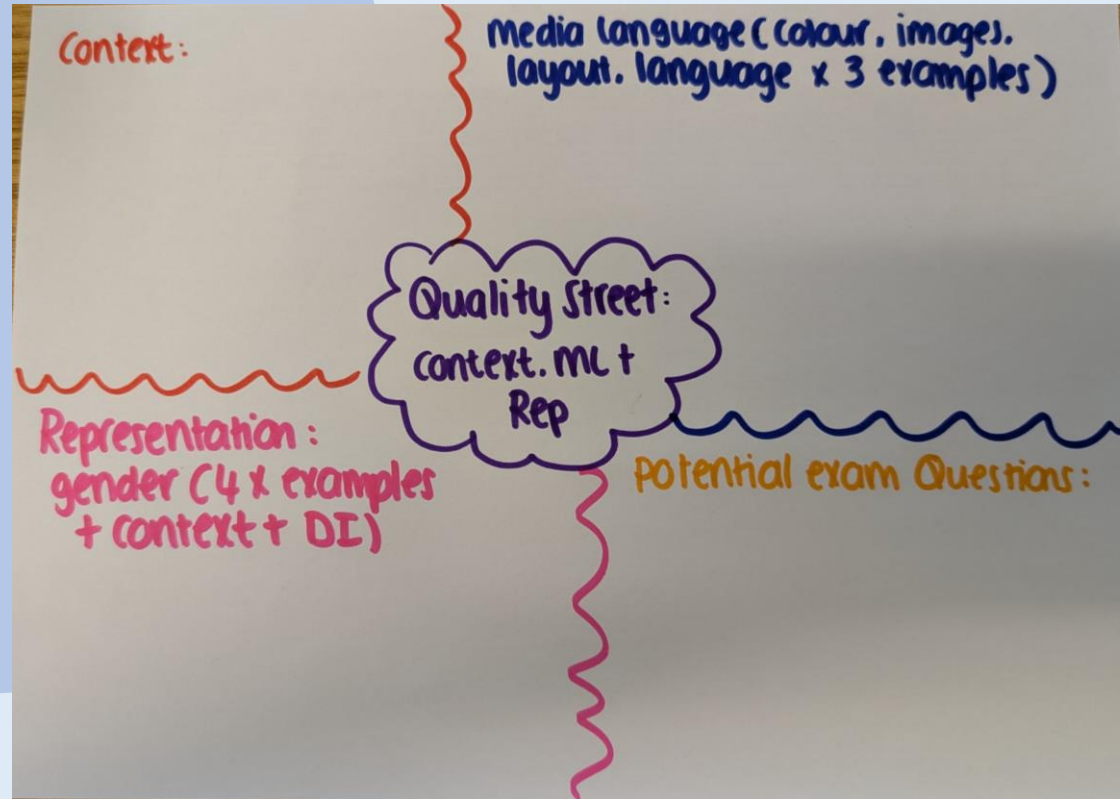 Context:
Media language (colour, images,
layout, language x 3 examples)
Quality Street:
context, ML +
Rep
Representation:
gender (4 x examples
+ context + DI)
Potential exam Questions: